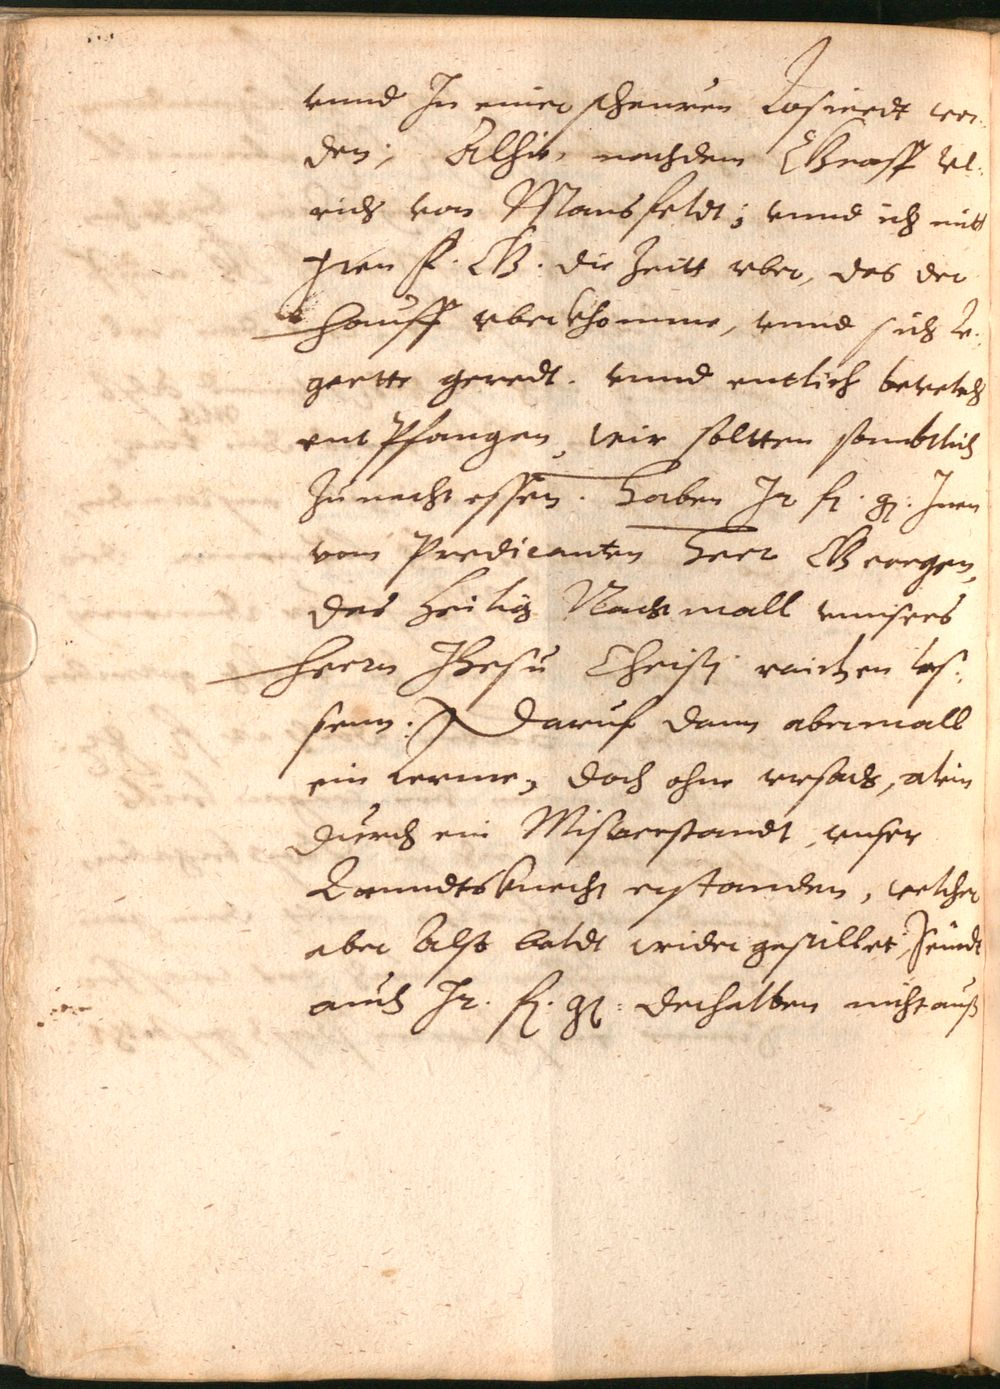 vnnd In einer scheuren Losiertt wor¬
den, Alhir nachdem Graff Vl¬
rich von Mansfeldt; vnnd ich mitt
Iren F. G. die Zeitt vber, das der
Hauff vberkhomme, vnnd sich
geredt. vnnd entlich bevelch
entPfangen, wir soltten sambtlich
Zu nacht essen. Haben Ir f. g. Inen
vom Predicanten Herr Georgen,
das heilig Nachtmall vnnsers
Herrn Jhesu Christi raichen las¬
senn: Daruf dann abermall
ein Lerme, doch ohne vrsach, alein
durch ein Misverstandt, vnser
Lanndtsknecht erstanden, welcher
aber Alsbaldt wider gestillet, Seindt
auch Ir. f. g: derhalben nicht auß